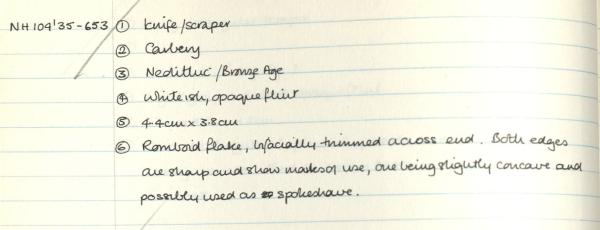 NH104'35-653 ① Knife/scraper
② Carbery
③ Neolithic/Bronze Age
④ Whiteish, opaque flint
⑤ 4.4cm x 3.8cm
⑥ Romboid flake, bifacially trimmed across end. Both edges
are sharp and show marks of use, one being slightly concave and
possibly used as spokeshave.